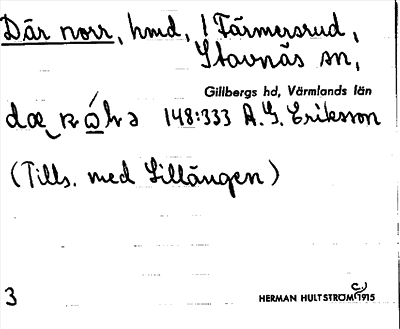 Där norr, hmd, 1 Färmersrud,
Stavnäs sn,
Gillbergs hd, Värmlands län
148:333 A. G. Eriksson
(Tills. med Lillängen)
3
HERMAN HULTSTRÖM C) 1915